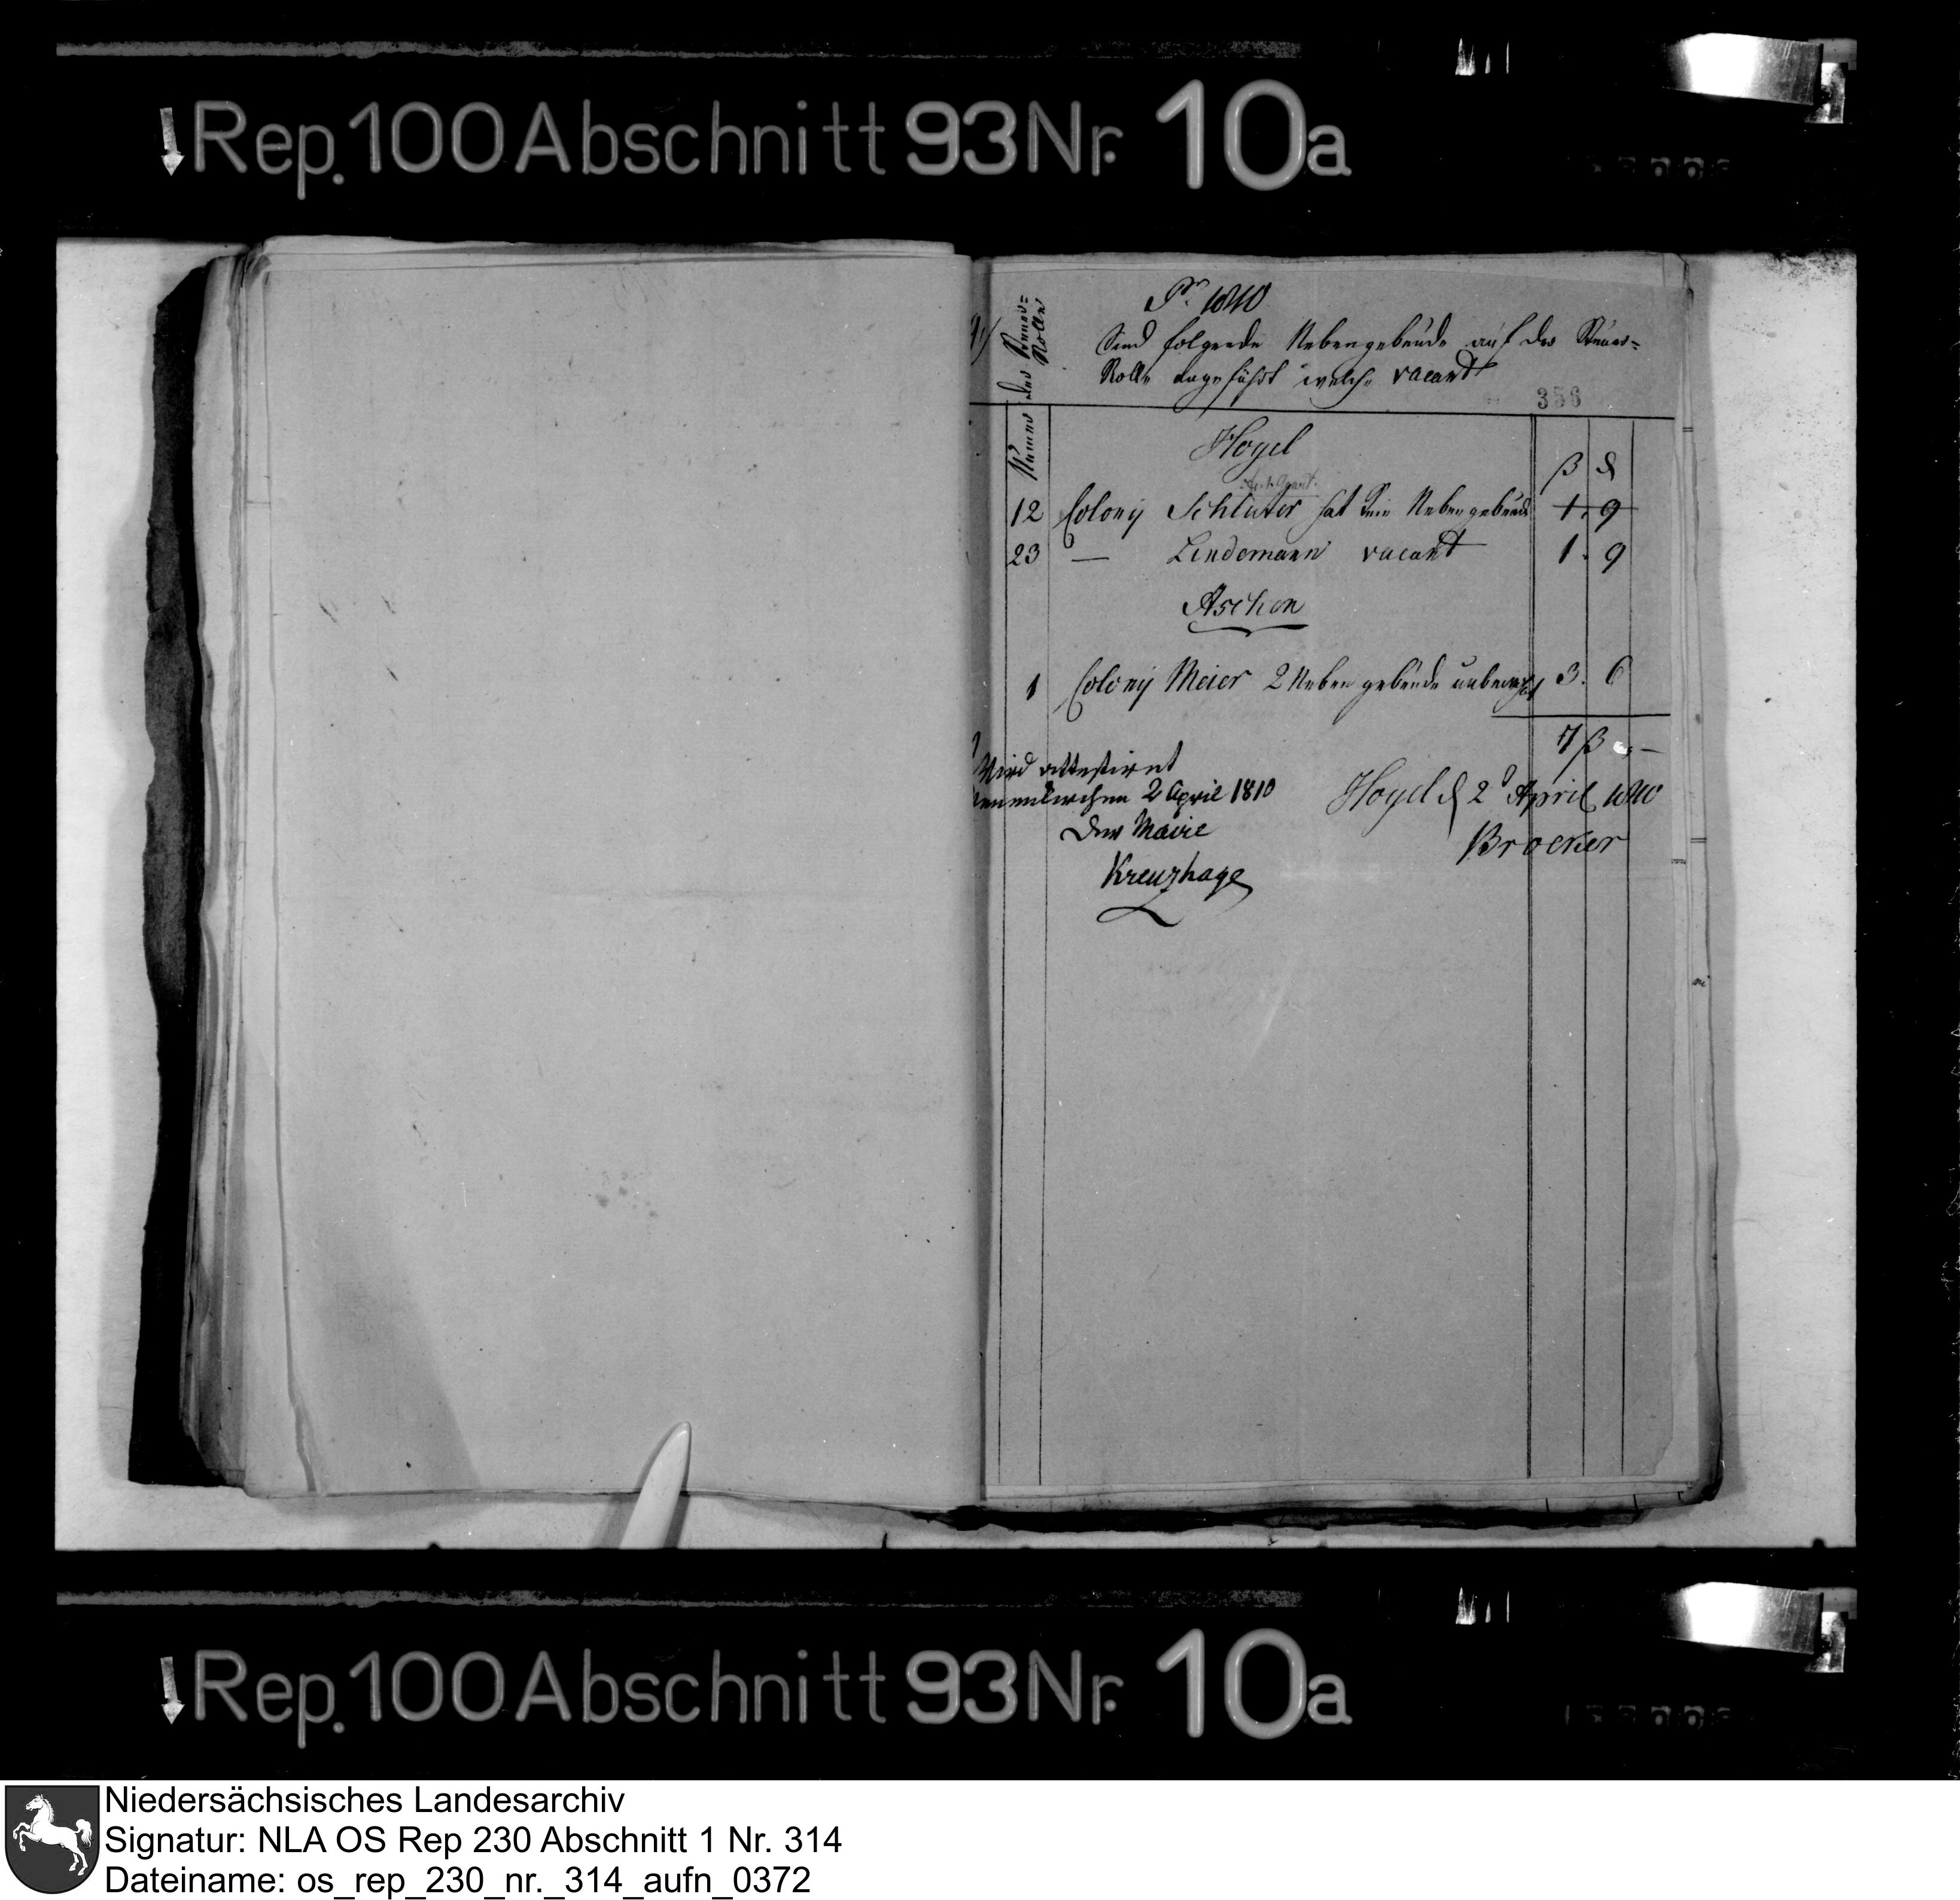 Rep. 100 Abschnitt 93 Nr. 10a
Pr. 1810
Sind folgende Nebengebäude auf der Steuer=
Rolle angeführt welche vacant
356
Numer der Steuer=
Rolle
Hoyel
ß ₰
12 Colony Schlüter hat kein Nebengebäude 1. 9
23 — Lindemann vacant 1. 9
Aschen
1 Colony Meier 2 Nebengebäude unbewohnt 3. 6
7 ß „ —
Wird attestirt
Neuenkirchen 2 April 1810
Der Maire
Kreuzhage
Hoyel d 2 April 1810
Broeker
Rep. 100 Abschnitt 93 Nr. 10a
Niedersächsisches Landesarchiv
Signatur: NLA OS Rep 230 Abschnitt 1 Nr. 314
Dateiname: os_rep_230_nr._314_aufn_0372